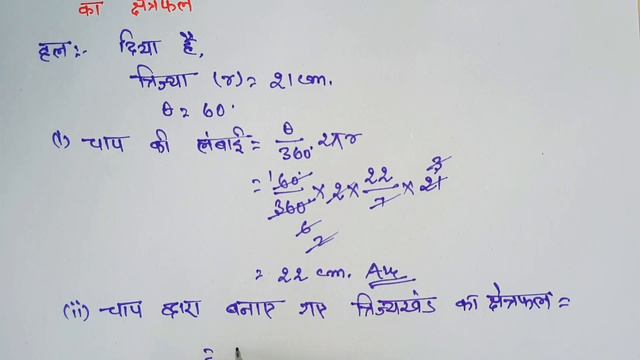 का क्षेत्रफल
हल:- दिया है,
त्रिज्या (r) = 21 cm.
θ = 60°
(i) चाप की लंबाई = θ/360° 2πr
= 60°/360° × 2 × 22/7 × 21
1 6 2 3
= 22 cm. Ans
(ii) चाप द्वारा बनाए गए त्रिज्यखंड का क्षेत्रफल =
=